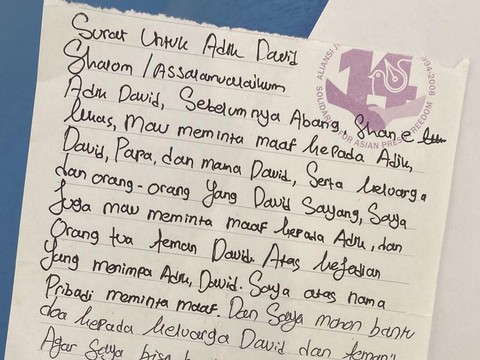 Surat Untuk Adik David
Shalom / Assalamualaikum
Adik David, Sebelumnya Abang, Shane
lukas, mau meminta maaf kepada Adik,
David, Papa, dan mama David, Serta keluarga
dan orang-orang Yang David Sayang, Saya
Juga mau meminta maaf kepada Adik, dan
Orang tua teman David. Atas kejadian
Yang menimpa Adik, David. Saya atas nama
Pribadi meminta maaf. Dan Saya mohon bantu
doa kepada keluarga David dan teman
Agar Saya bisa
ALIANSI
1994-2008
SOLIDARITY FOR ASIAN PRESS FREEDOM
14